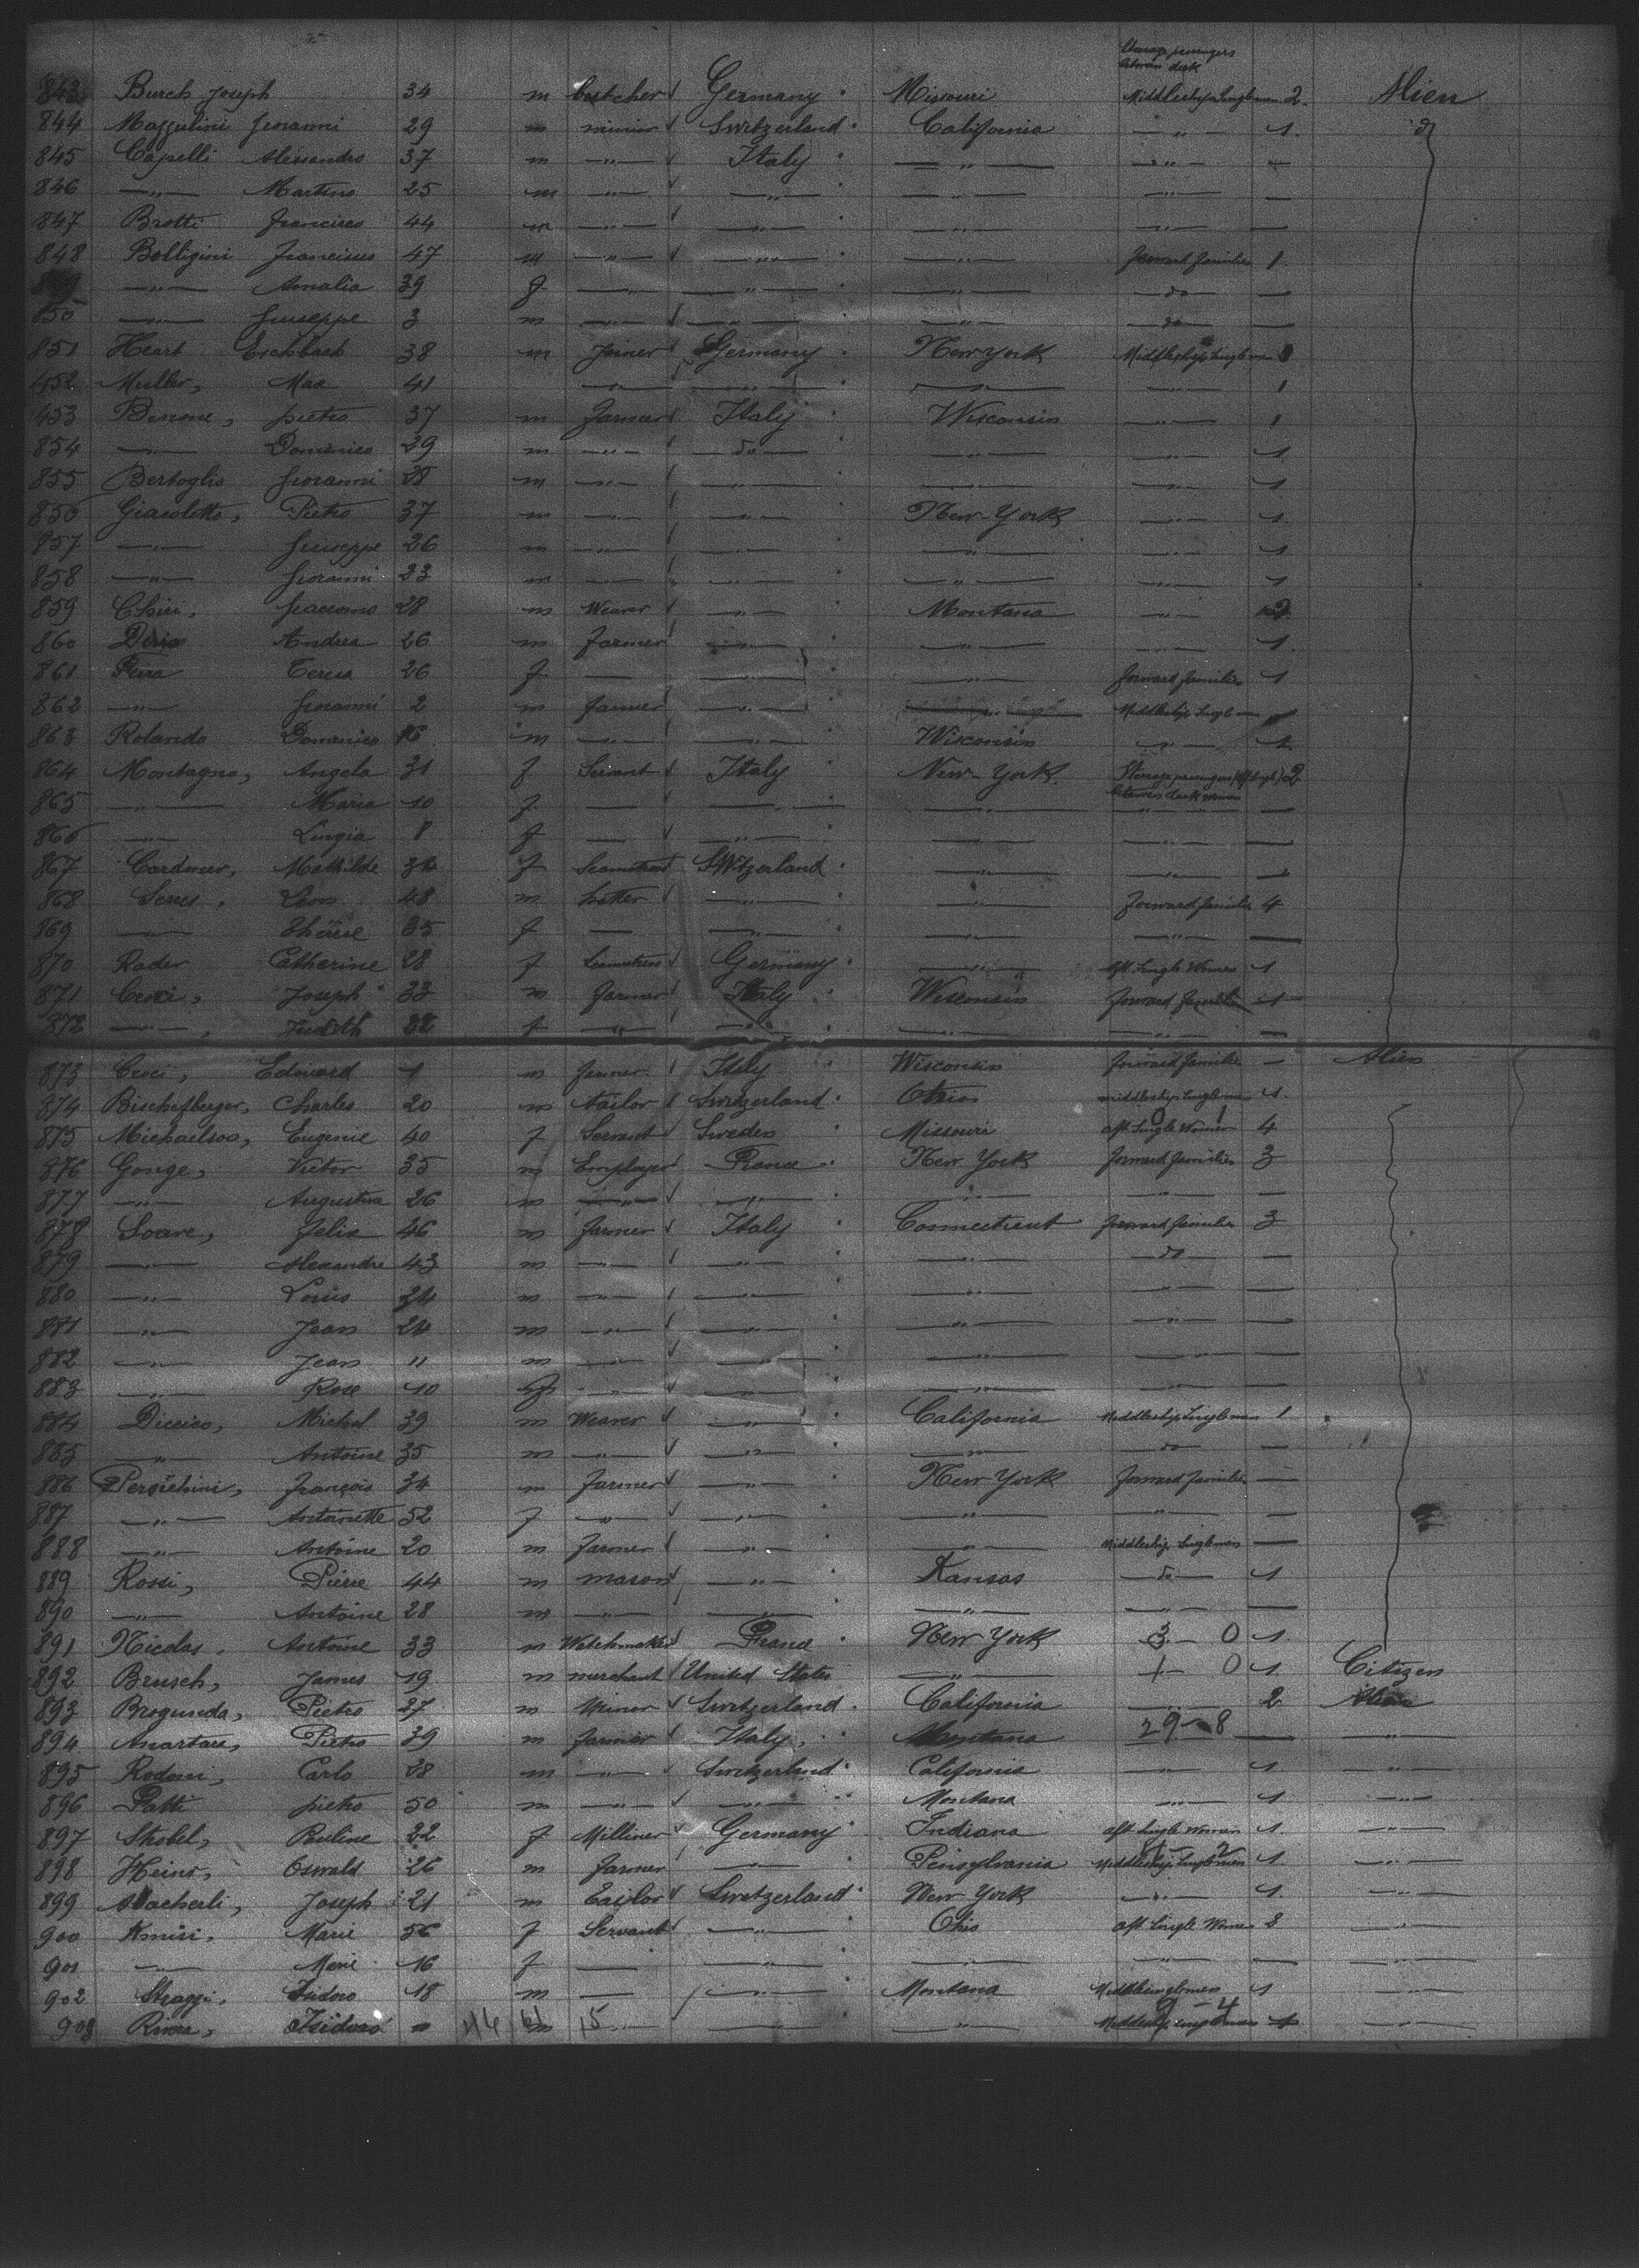 Steerage passengers
between deck
843 Burch Joseph 34 m butcher Germany Missouri Middleship Singlemen 2. Alien
844 Mazzulini Giovanni 29 m minor Switzerland California — „ — 1. d
845 Capelli Alessandro 37 m — „ — Italy — „ — — „ — —
846 — „ — Martino 25 m — „ — — „ — — „ — — „ — —
847 Brotti Francisco 44 m — „ — — „ — — „ — — „ — —
848 Bolligini Franciscus 47 m — „ — — „ — — „ — forward families 1.
849 — „ — Amalia 39 f — „ — — „ — — „ — do —
850 — „ — Giuseppe 3 m — „ — — „ — — „ — do —
851 Heart Eschbach 38 m Joiner Germany New York Middleship Singlemen
452 Muller, Max 41 — „ — — „ — — „ — — „ — 1
453 Benone, pietro 37 m farmer Italy Wisconsin — „ — 1
854 — „ — Domenico 29 m — „ — do — „ — — „ — 1
855 Bertoglio Giovanni 28 m — „ — — „ — — „ — — „ — 1
856 Giacoletto, Pietro 37 m — „ — — „ — New-York — „ — 1.
857 — „ — Giuseppe 26 m — „ — — „ — — „ — — „ — 1.
858 — „ — Giovanni 23 m — „ — — „ — — „ — — „ — 1
859 Chiri, Giacomo 28 m Weaver — „ — Montana — „ — 2
860 Andrea 26 m farmer — „ — — „ — — „ — 1.
861 Peira Teresa 26 f — — „ — — „ — forward families 1
862 — „ — Giovanni 2 m farmer — „ — Middleship Singlemen
863 Rolando Domenico 16 m — „ — — „ — Wisconsin — „ — 1
864 Montagna, Angela 31 f Servant Italy New-York Steerage passengers (aft single) 2
between deck women
865 — „ — Maria 10 f — — „ — — „ — — „ — —
866 — „ — Luigia 8 f — — „ — — „ — — „ — —
867 Cardoner, Mathilde 34 f Seamstress Switzerland — „ — — „ — —
868 Serres, Leon 48 m — „ — — „ — forward families 4
869 — „ — Thérèse 35 f — — „ — — „ — — „ — —
870 Rader Catherine 28 f Seamstress Germany — „ — aft Single Women 1
871 Croci, Joseph 33 m farmer Italy Wisconsin forward families 1
872 — „ —, Judith 32 f — „ — — „ — — „ — — „ — —
873 Croci, Edouard 1 m farmer Italy Wisconsin forward families — Alien
874 Bischofberger, Charles 20 m tailor Switzerland Ohio middleship Singlemen 1.
875 Michaelson, Eugenie 40 f Servant Sweden Missouri aft Single Women 4
876 Gonge, Victor 35 m Employer France New York forward families 3
877 — „ — Augustine 26 m — „ — — „ — — „ — — „ — —
878 Soave, Felix 46 m farmer Italy Connecticut forward families 3
879 — „ — Alexandre 43 m — „ — — „ — — „ — do —
880 — „ — Louis 34 m — „ — — „ — — „ — — „ — —
881 — „ — Jean 24 m — „ — — „ — — „ — — „ — —
882 — „ — Jean 11 m — „ — — „ — — „ — — „ — —
883 — „ — Rose 10 f — „ — — „ — — „ — — „ — —
884 Diccico, Michel 39 m Weaver — „ — California Middleship Singlemen 1
885 — „ — Antoine 35 m — „ — — „ — — „ — do —
886 Persichini, François 34 m farmer — „ — New-York forward families —
887 — „ — Antoinette 52 f — „ — — „ — — „ — — „ — —
888 — „ — Antoine 20 m farmer — „ — — „ — Middleship Singlemen —
889 Rossi, Pierre 44 m mason — „ — Kansas do 1
890 — „ — Antoine 28 m — „ — — „ — — „ — — „ — —
891 Nicolas, Antoine 33 m Watchmaker France New York 3 — 0 1.
892 Brusch, James 19 m merchant United States — „ — 1 — 0 1. Citizen
893 Brogunda, Pietro 27 m Minor Switzerland California — „ — 2 Alien
894 Anartara, Pietro 39 m farmer Italy, Montana 29 — 8 — — „ —
895 Rodoni, Carlo 28 m — „ — Switzerland California — „ — 1 — „ —
896 Patti pietro 50 m — „ — — „ — Montana — „ — 1 — „ —
897 Strobel, Pauline 22 f Milliner Germany Indiana aft Single Women 1. — „ —
898 Heins, Oswald 26 m farmer — „ — Pensylvania Middleship Singlemen 1 — „ —
899 Macherli, Joseph 21 m Tailor Switzerland New York — „ — 1. — „ —
900 Kmiri, Marie 56 f Servant — „ — Ohio aft Single Women 3 — „ —
901 — „ — Marie 16 f — — „ — — „ — — „ — — — „ —
902 Stragzi, Isidoro 18 m — — „ — Montana Middle singlemen 1 — „ —
9 — 4
903 Rivera, Isidoro 46 61 m 15 — „ — — „ — Middleship Singlemen 1 — „ —